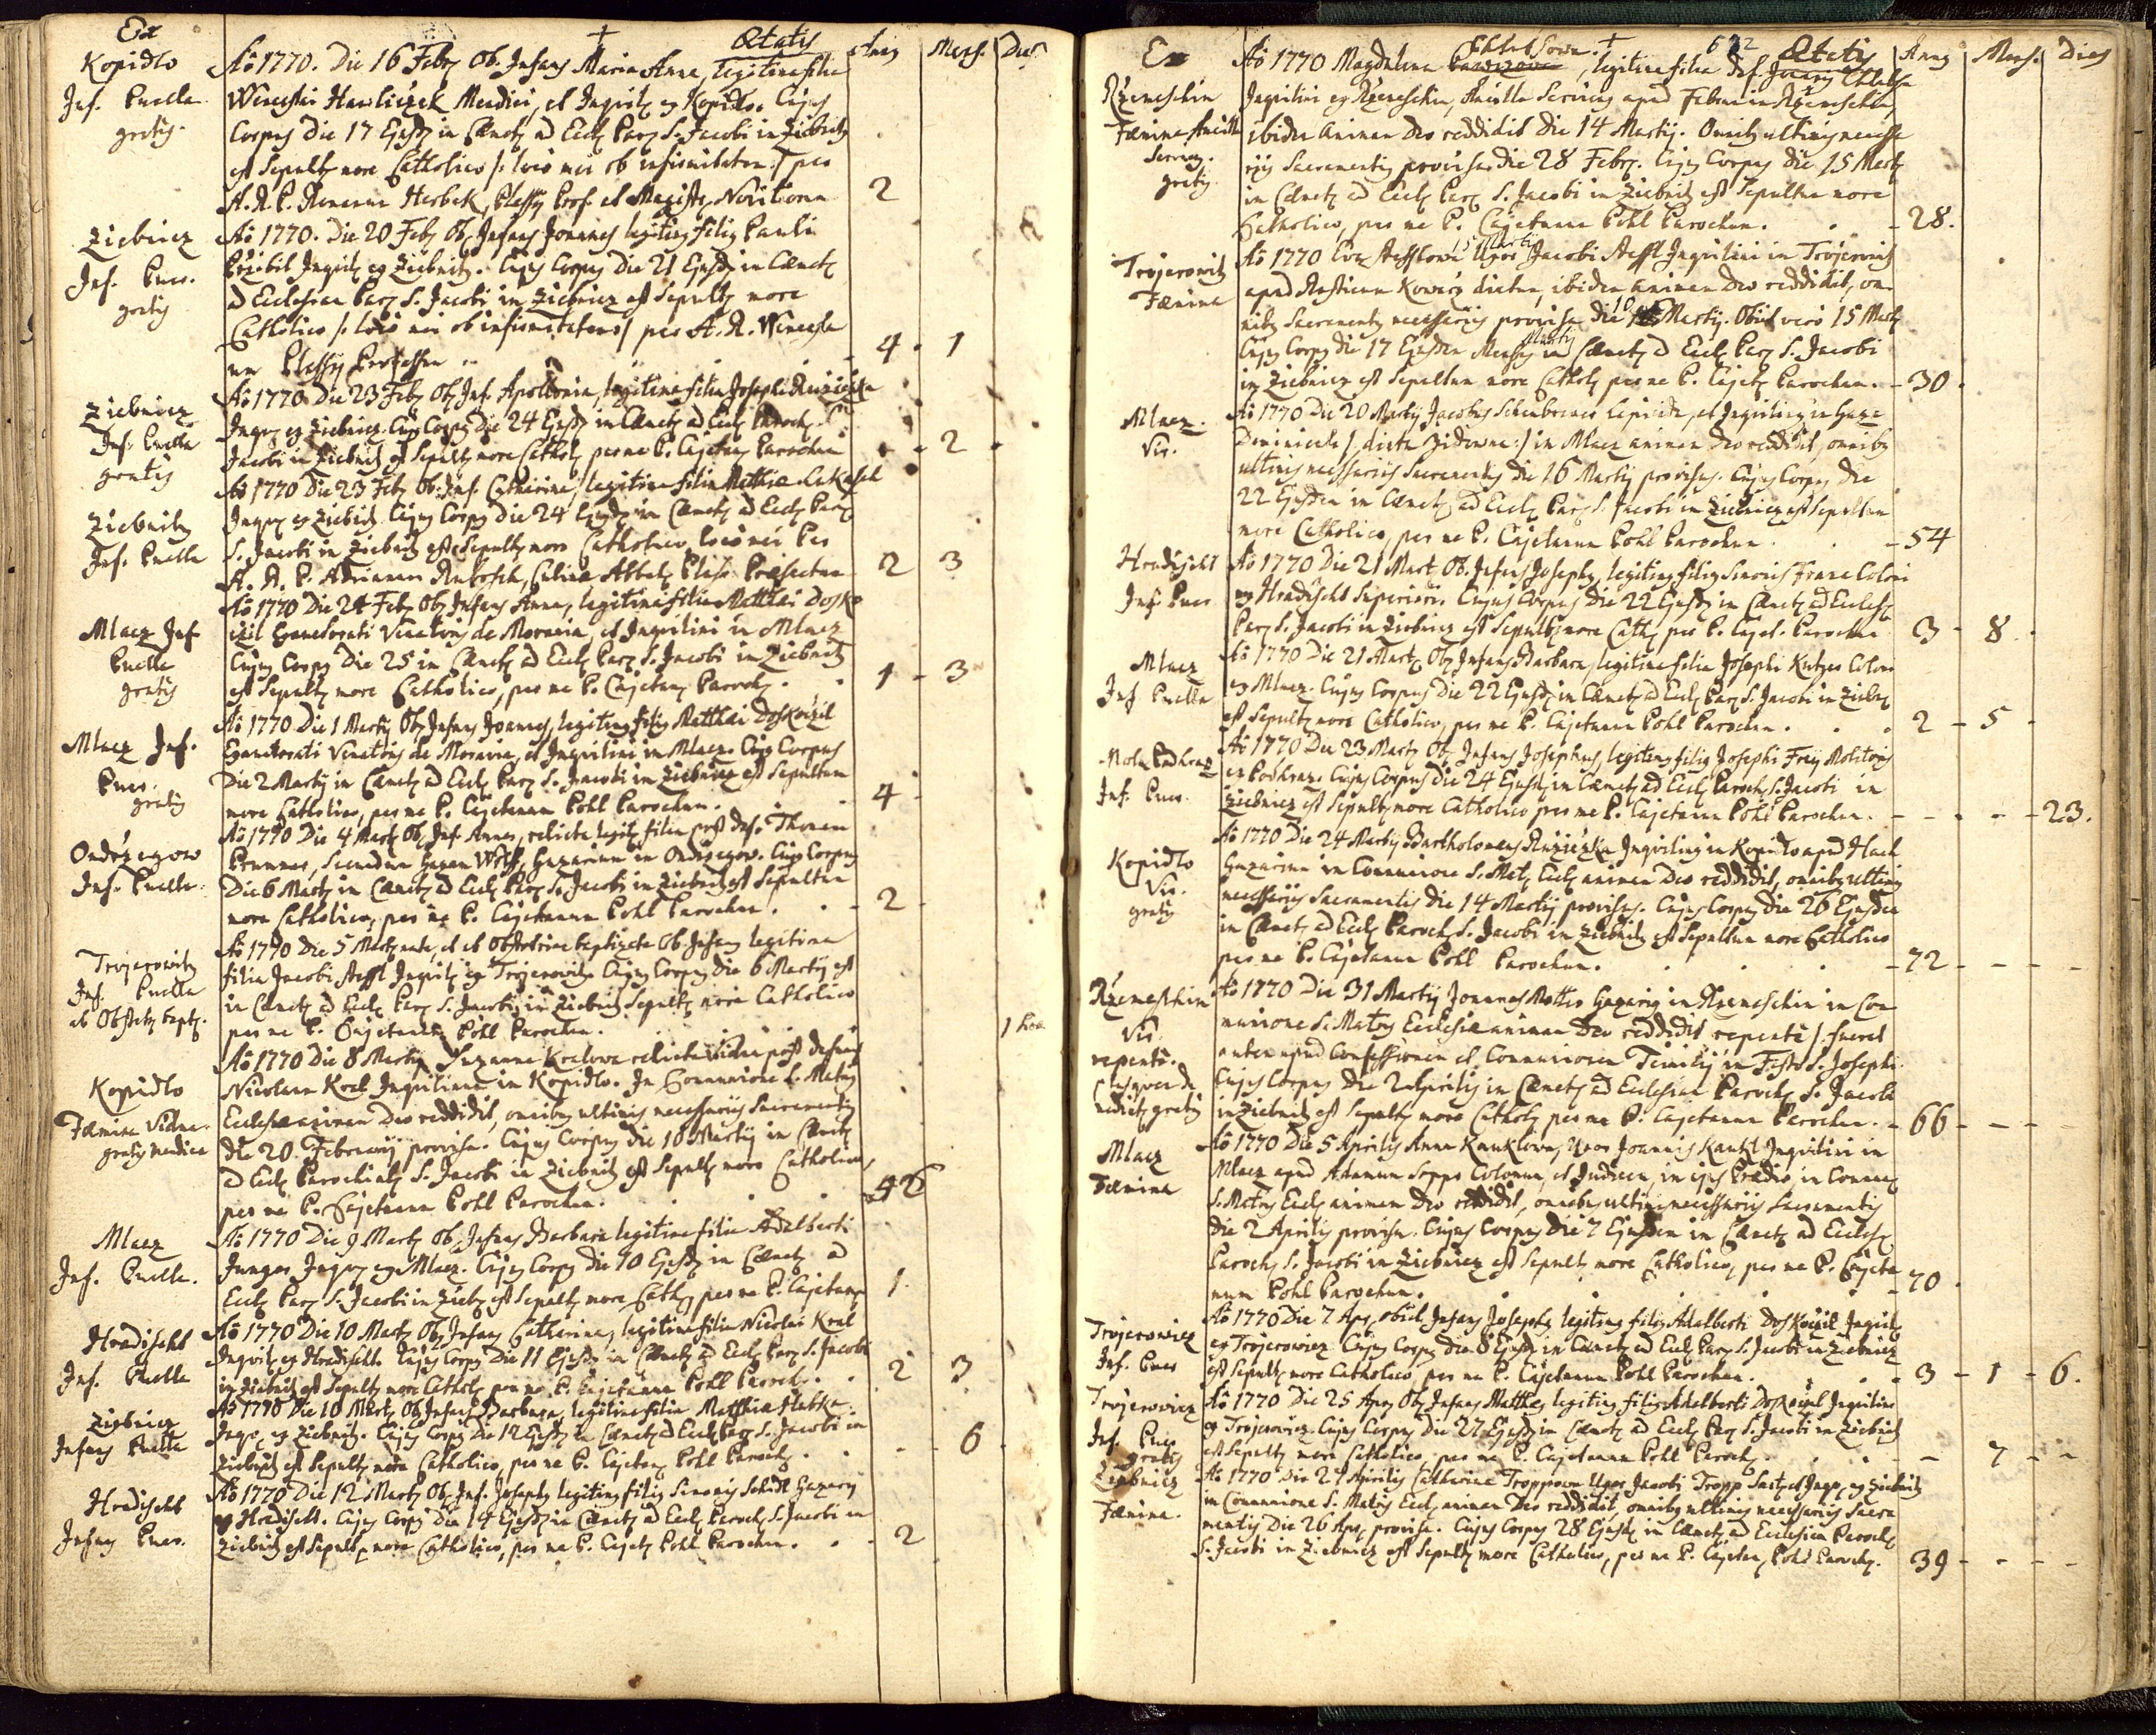 Ex + Ætatis Anny Mens. Dies
Kopidlo
Inf. Puella
gratis.
Aõ 1770. Die 16 Febr. Ob. Infans Maria Anna, legitima filia
Wenceslai Hawliczek Mendici, et Inquil. ex Kopidlo. Cujus
Corpus Die 17 Ejusd. in Cæmet. ad Eccl. Par. S. Jacobi in Ziebnitz
est Sepult. more Catholico /: loco mei ob infirmitatem :/ per
A. R. P. Herbek, Plass. Prof. et Novitiorum 2
Ziebnicz
Inf. Puer.
gratis
Aõ 1770. Die 20 Feb. Ob. Infans Joannes legitimus filius Pauli
Przibil Inquil. ex Ziebnitz. Cujus Corpus Die 21 Ejusd. in Cæmet.
ad Ecclesiam Par. S. Jacobi in Ziebnicz est Sepult. more
Catholico /: loco mei ob infirmitatem :/ per A. R. Wencesla
um Plassij Professum 4 . 1
Ziebnicz
Inf. Puella
gratis
Aõ 1770 Die 23 Feb. Ob. Inf. Apollonia, legitima filia Josephi Ruziczka
Inquil. ex Ziebnicz. Cujus Corpus Die 24 Ejusd. in Cæmet. ad Eccl. Paroch. S.
Jacobi in Ziebnitz est Sepult. more Cathol. per me P. Cajetan. Parochum - 2 -
Ziebnitz
Inf. Puella
Aõ 1770 Die 23 Feb. Ob. Inf. Catharina, legitima filia Mathiæ
Inquil. ex Ziebnitz. Cujus Corpus Die 24 Ejusd. in Cæmet. ad Eccl. Par.
S. Jacobi in Ziebnitz est Sepult. more Catholico, loco mei Per
A. R. P. Adrianum 2 3
Mlacz Inf.
Puella
gratis
Aõ 1770 Die 24 Feb. Ob. Infans Anna, legitima filia Matthæi Dosko
czil Exauctorati Venatoris de Moravia, et Inquilini in Mlacz
Cujus Corpus Die 25 in Cæmet. ad Eccl. Par. S. Jacobi in Ziebnitz
est Sepult. more Catholico, per me P. Cajetan. Paroch. 1 - 3
Mlacz Inf.
Puer.
gratis
Aõ 1770 Die 1 Martij Ob. Infans Joannes, legitimus filius Matthæi Doskoczil
Exauctorati Venatoris de Moravia, et Inquilini in Mlacz. Cujus Corpus
Die 2 Martij in Cæmet. ad Eccl. Par. S. Jacobi in Ziebnicz est Sepultum
more Catholico, per me P. Cajetanum Pohl Parochum. 4
Ondrzegow
Inf. Puella.
Aõ 1770 Die 4 Mart. Ob. Inf. Anna, relicta legit. filia post def. Thomam
Gazarium in Ondrzegow. Cujus Corpus
Die 6 Mart. in Cæmet. ad Eccl. Par. S. Jacobi in Ziebnitz est Sepultum
more Catholico, per me P. Cajetanum Pohl Parochum. 2
Trojerowitz
Inf. Puella
ab Obstetr. bapt.
Aõ 1770 Die 5 Mart. nata, et ab Obstetrice baptizata Ob. Infans legitima
filia Jacobi Steffl Inquil. ex Trojerowitz. Cujus Corpus die 6 Martij est
in Cæmet. ad Eccl. Par. S. Jacobi in Ziebnitz Sepult. more Catholico
per me P. Cajetanum Pohl Parochum. 1 hora
Kopidlo
Fæmina Vidua
gratis mendica
Aõ 1770 Die 8 Martij Suzanna Kralowa relicta Vidua post defunct.
Nicolaum Kral Inquilinum in Kopidlo. In Communione S. Matris
Ecclesiæ animam Deo reddidit, omnibus ultimis necessariis Sacramentis
die 20 Februarij provisa. Cujus Corpus die 10 Martij in Cæmet.
ad Eccl. Parochialem S. Jacobi in Ziebnitz est Sepult. more Catholico,
per me P. Cajetanum Pohl Parochum. 42
Mlacz
Inf. Puella.
Aõ 1770 Die 9 Mart. Ob. Infans Barbara legitima filia Adalberti
Junger Inquil. ex Mlacz. Cujus Corpus die 10 Ejusd. in Cæmet. ad
Eccl. Par. S. Jacobi in Ziebn. est Sepult. more Cath. per me P. Cajetanum 1
Hradischt
Inf. Puella
Aõ 1770 Die 10 Mart. Ob. Infans Catharina, legitima filia Nicolai Kral
Inquil. ex Hradischt. Cujus Corpus Die 11 Ejusd. in Cæmet. ad Eccl. Par. S. Jacobi
in Ziebnitz est Sepult. more Cathol. per me P. Cajetanum Pohl Paroch. 2 3
Ziebnicz
Infans Puella
Aõ 1770 Die 10 Mart. Ob. Infans Barbara, legitima filia Matthiæ
Inquil. ex Ziebnitz. Cujus Corpus Die 12 Ejusd. in Cæmet. ad Eccl. Par. S. Jacobi in
Ziebnitz est Sepult. more Catholico, per me P. Cajetan. Pohl Paroch. - - 6
Hradischt
Infans Puer.
Aõ 1770 Die 12 Mart. Ob. Inf. Josephus legitimus filius Simonis Schidl Gazarij
ex Hradischt. Cujus Corpus Die 14 Ejusd. in Cæmet. ad Eccl. Paroch. S. Jacobi in
Ziebnitz est Sepult. more Catholico, per me P. Cajet. Pohl Parochum. 2
Ex + 622 Ætatis Anny Mens. Dies
Rzemeschin
Fæmina Ancilla
Serviens.
gratis
Aõ 1770 Magdalena, legitima filia def. Joannis
Inquilini ex Rzemeschin, Ancilla Serviens apud Fabrum in Rzemeschin,
ibidem animam Deo reddidit Die 14 Martij. Omnibus ultimis necessa
rijs Sacramentis provisa die 28 Febr. Cujus Corpus die 15 Mart.
in Cæmet. ad Eccl. Par. S. Jacobi in Ziebnitz est Sepultum more
Catholico, per me P. Cajetanum Pohl Parochum. - 28.
Trojerowitz
Fæmina
Aõ 1770 15 Martij Eva Stefflowa Uxor Jacobi Steffl Inquilini in Trojerowitz
apud Rusticum Kowarz dictum, ibidem animam Deo reddidit, om
nibus Sacramentis necessariis provisa die 10 Martij. Obiit vero 15 Mart.
Cujus Corpus die 17 Ejusdem Mensis Martij in Cæmet. ad Eccl. Par. S. Jacobi
in Ziebnicz est Sepultum more Cathol. per me P. Cajet. Parochum. - 30.
Mlacz.
Vir.
Aõ 1770 Die 20 Martij Jacobus Lapicida, et Inquilinus in Gaza
Dominicali /: dicta Zidowna :/ in Mlacz animam Deo reddidit, omnibus
ultimis necessariis Sacramentis die 16 Martij provisus. Cujus Corpus die
22 Ejusdem in Cæmet. ad Eccl. Par. S. Jacobi in Ziebnicz est Sepultum
more Catholico, per me P. Cajetanum Pohl Parochum. - 54
Hradischt
Inf. Puer
Aõ 1770 Die 21 Mart. Ob. Infans Josephus, legitimus filius Simonis Franc Coloni
ex Hradischt Superiori. Cujus Corpus Die 22 Ejusd. in Cæmet. ad Eccles.
Par. S. Jacobi in Ziebnicz est Sepult. more Cath. per P. Cajet. Parochum 3 - 8 -
Mlacz
Inf. Puella
Aõ 1770 Die 21 Mart. Ob. Infans Barbara, legitima filia Josephi Coloni
ex Mlacz. Cujus Corpus Die 22 Ejusd. in Cæmet. ad Eccl. Par. S. Jacobi in Ziebn.
est Sepult. more Catholico, per me P. Cajetanum Pohl Parochum. 2 - 5 -
Mola Podhraz
Inf. Puer.
Aõ 1770 Die 23 Mart. Ob. Infans Josephus, legitimus filius Josephi Frey Molitoris
in Podhraz. Cujus Corpus die 24 Ejusd. in Cæmet. ad Eccl. Paroch. S. Jacobi in
Ziebnicz est Sepult. more Catholico per me P. Cajetanum Pohl Parochum. - - - - 23.
Kopidlo
Vir.
gratis
Aõ 1770 Die 24 Martij Bartholomæus Ruziczka Inquilinus in Kopidlo apud
Gazarium in Communione S. Mat. Eccl. animam Deo reddidit, omnibus ultimis
necessariis Sacramentis die 14 Martij provisus. Cujus Corpus die 26 Ejusdem
in Cæmet. ad Eccl. Paroch. S. Jacobi in Ziebnitz est Sepultum more Catholico
per me P. Cajetanum Pohl Parochum. - 72 - - - -
Rzemeschin
Vir
repente.
gratis
Aõ 1770 Die 31 Martij Joannes Gazarius in Rzemeschin in Com
munione S. Matris Ecclesiæ animam Deo reddidit repente /: fuerat
autem apud Confessionem et Communionem in Festo S. Josephi.
Cujus Corpus die 2 Aprilis in Cæmet. ad Ecclesiam Paroch. S. Jacobi
in Ziebnitz est Sepult. more Cathol. per me P. Cajetanum Parochum. - 66 - - -
Mlacz
Fæmina
Aõ 1770 Die 5 Aprilis Anna Kauklowa, Uxor Joannis Kaukl Inquilini in
Mlacz apud Adamum Sopps Colonum, et Judicem, in ejus Prædio, in Commun.
S. Matris Eccl. animam Deo reddidit, omnibus ultimis necessariis Sacramentis
die 2 Aprilis provisa. Cujus Corpus die 7 Ejusdem in Cæmet. ad Eccles.
Paroch. S. Jacobi in Ziebnicz est Sepult. more Catholico, per me P. Cajeta
num Pohl Parochum. - 70
Trojerowicz
Inf. Puer
Aõ 1770 Die 7 Apr. obiit Infans Josephus, legitimus filius Adalberti Doskoczil Inquil.
ex Trojerowicz. Cujus Corpus die 8 Ejusd. in Cæmet. ad Eccl. Par. S. Jacobi in Ziebnicz
est Sepult. more Catholico, per me P. Cajetanum Pohl Parochum. - 3 - 1 - 6.
Trojerowicz
Inf. Puer
gratis
Aõ 1770 Die 25 Apr. Ob. Infans Mathæus legitimus filius Adalberti Doskoczil Inquilini
ex Trojerowicz. Cujus Corpus Die 27 Ejusd. in Cæmet. ad Eccl. Par. S. Jacobi in Ziebnitz
est Sepult. more Catholico, per me P. Cajetanum Pohl Paroch. - - 7 - -
Ziebnicz
Fæmina.
Aõ 1770 Die 27 Aprilis Catharina Troppowa Uxor Jacobi Tropp et Inqu. ex Ziebnitz
in Communione S. Matris Eccl. animam Deo reddidit, omnibus ultimis necessariis Sacra
mentis Die 26 Apr. provisa. Cujus Corpus 28 Ejusd. in Cæmet. ad Ecclesiam Paroch.
S. Jacobi in Ziebnicz est Sepult. more Catholico, per me P. Cajetan. Pohl Paroch. 39 - - - -